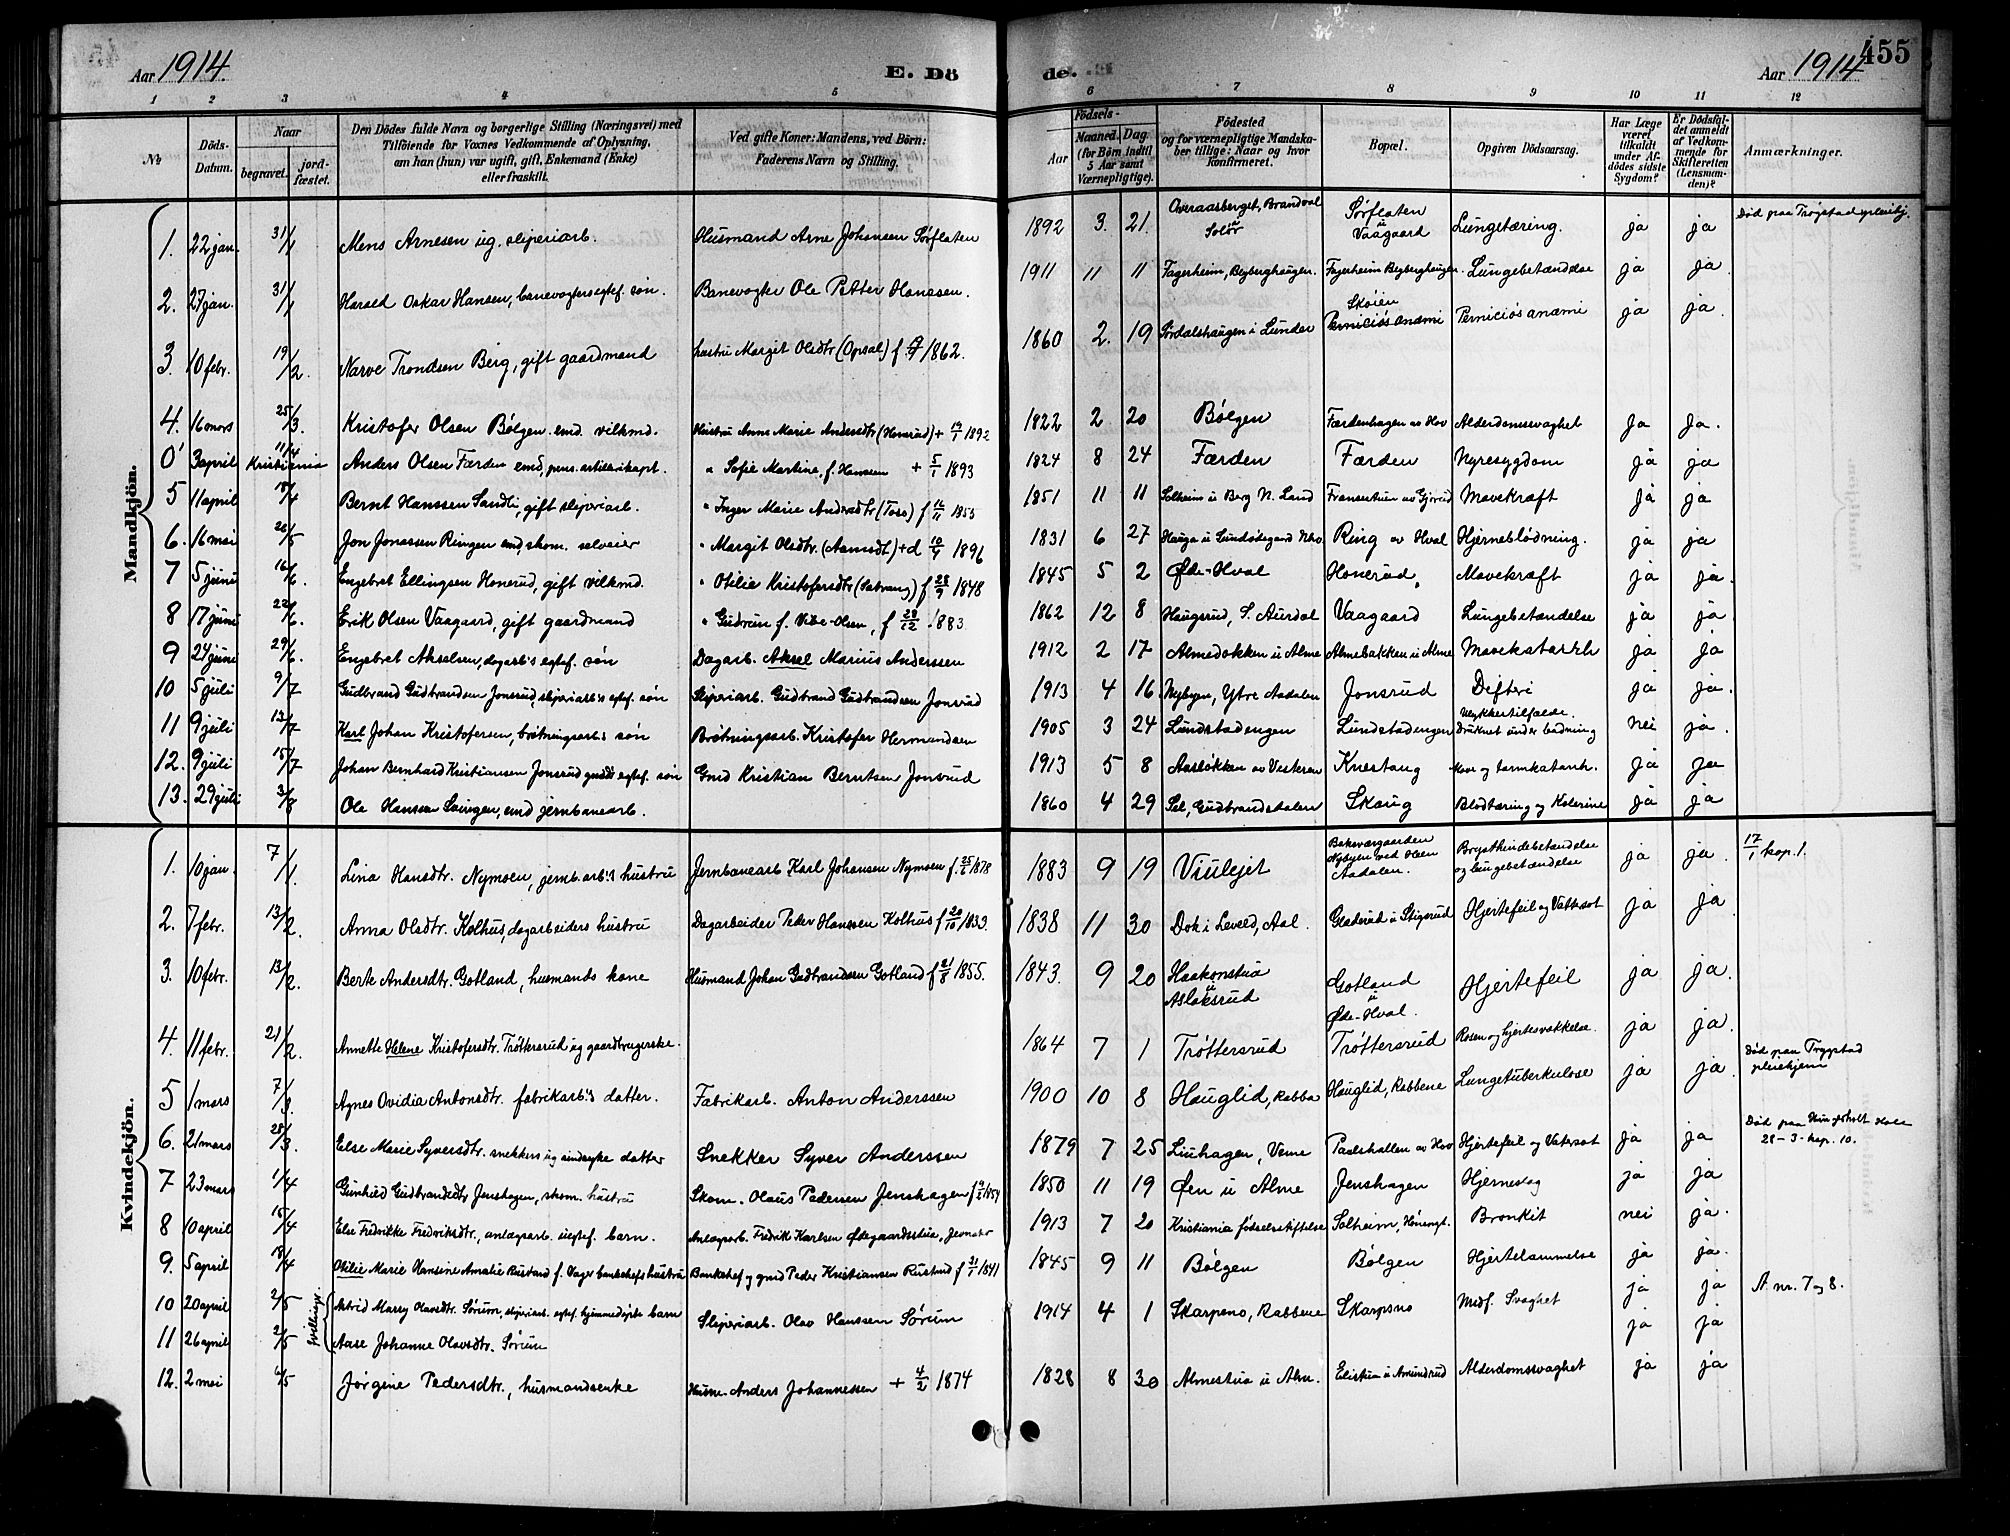 Aar 1914
E. Dö
de.
Aar 1914
455
1 2 3 4 5 6 7 8 9 10 11 12
No
Döds-Datum.
Naar
begravet.
jord-fæstet.
Den Dödes fulde Navn og borgerlige Stilling (Næringsvei) med
Tilföiende for Voxnes Vedkommende af Oplysning,
om han (hun) var ugift, gift, Enkemand (Enke)
eller fraskilt.
Ved gifte Koner: Mandens, ved Börn:
Faderens Navn og Stilling.
Födsels-
Aar
Maaned. Dag.
(for Börn indtil
5 Aar samt
Værnepligtige).
Födested
og for værnepligtige Mandska-
ber tillige: Naar og hvor
konfirmeret.
Bopæl.
Opgiven Dödsaarsag.
Har Læge
været
tilkaldt
under Af-
dödes sidste
Sygdom?
Er Dödsfal-
det anmeldt
af Vedkom-
mende for
Skifteretten
(Lensman-
den)?
Anmærkninger.
Mandkjön.
1. 22 jan. 31/1 Mens Arnesen ug. sliperiarb. Husmand Arne Johansen Sørflaten 1892 3. 21. Overaasberget, Brandval Solør Sørflaten u Vaagaard Lungetæring. ja ja Død paa Trøgstad pleiehj.
2. 27 jan. 31/1 Harald Oskar Hansen, banevogters egtef. søn. Banevogter Ole Petter Hanssen. 1911 11 11 Fagerheim, Begberghaugen. Fagerheim Begberghaugen. Lungebetændelse ja ja
3. 10 febr. 19/2. Narve Trondsen Berg, gift gaardmand hustru Margit Olsdtr (Opsal) f. 1862. 1860 2. 19 Sørdalshaugen i Lunder Skøien Perniciøs anæmi Perniciøs anæmi ja ja
4. 16 mars 25/3. Kristofer Olsen Bølgen. emd. vilkmd. Hustru Anne Marie Andersdtr (Honerud) + 19/1 1892 1822 2 20 Bølgen Færdenhagen av Hov Alderdomssvaghet ja ja.
0' 3 april 11/4 Kristiania Anders Olsen Færden emd, pens. artillerikapt. " Sofie Martine, f. Hansen + 5/1 1893 1824 8 24 Færden Færden Nyresygdom ja ja
5 11 april 18/4 Bernt Hanssen Sandli, gift sliperiarb. " Inger Marie Andersdtr (Toso) f 16/11 1855 1851 11 11 Solheim u Berg N. Land Fransestuen av Gjerud Mavekræft ja ja
6. 16 mai 26/5 Jon Jonassen Ringen emd skom. selveier " Margit Olsdtr. (Aamodt) +d 10/4 1896 1831 6 27 Ring av Hval Hjerneblødning. ja ja
7 5 juni 16/6. Engebret Ellingsen Honerud, gift vilkmd. " Otilie Kristofersdtr f 28/9 1848 1845 5 2 Øde-Hval Honerud, Mavekræft ja ja.
8 17 juni 22/6. Erik Olsen Vaagaard, gift gaardmand " Gudrun f. Vibe-Olsen, f 28/12 1883. 1862 12 8 Haugsrud, S. Aurdal Vaagaard Lungebetændelse ja ja
9 24 juni 29/6. Engebret Akselsen, dagarb's egtef. søn Dagarb. Aksel Marius Anderssen 1912 2 17 Almebakken u Alme Almebakken u Alme Mavekatarrh ja ja
10 5 juli 9/7 Gudbrand Gudbrandsen Jonsrud, sliperiarb's egtef. søn Sliperiarb. Gudbrand Gudbrandsen Jonsrud 1913 4 16. Nybyen, Ytre Aadalen Jonsrud Difteri ja ja.
11 9 juli 13/7 Karl Johan Kristofersen, brøtningsarb.s søn Brøtningsarb. Kristofer Hermandsen 1905 3 24 Lundstadengen Lundstadengen Ulykkestilfælde. Druknet under badning nei ja.
12. 9 juli 15/7 Johan Bernhard Kristiansen Jonsrud gmds egtef. søn Gmd Kristian Berntsen Jonsrud 1913 5 8 Aasløkken av Vesteren Knestang Mave og tarmkatarrh. ja ja
13. 29 juli 3/8 Ole Hanssen emd jernbanearb. 1860 4 29 Sel, Gudbrandsdalen Skaug Blodtæring og Kolerine ja ja
Kvindekjön.
1. 10 jan. 7/1. Lina Hansdtr. Nymoen, jernb.arb's hustru Jernbanearb Karl Johansen Nymoen f. 25/2 1878 1883 9 19 Viulejet Bakværgaarden Nybyen ved Hoen Aadalen. Brysthindebetændelse og lungebetændelse ja ja. 17/1 kop. 1.
2. 7 febr. 13/2. Anna Olsdtr. Kolhus, dagarbeiders hustru Dagarbeider Peder Hanssen Kolhus f 20/10 1833. 1838 11 30 Dok i Leveld, Aal. Gladerud u Stigerud Hjertefeil og Vattersot ja ja
3. 10 febr. 13/2. Berte Andersdtr. Gotland, husmands kone Husmand Johan Gudbrandsen Gotland f 21/8 1855. 1843. 9 20 Haakonstua u Aslaksrud Gotland u Øde-Hval. Hjertefeil ja ja.
4. 11 febr. 21/2. Annette Helene Kristofersdtr. Trøttersrud ug gaardbrugerske. 1864 7 1 Trøttersrud Trøttersrud Rosen og hjertesvækkelse. ja ja.
5 1 mars 7/3. Agnes Ovidia Antonsdtr. fabrikarb's datter. Fabrikarb. Anton Anderssen 1900 10 8 Hauglid, Rabba Hauglid, Rabbene Lungetuberkulose ja ja. Død paa Trygstad pleiehjem
6. 21 mars 28/3. Else Marie Syversdtr. snekkers ug sindssyke datter Snekker Syver Anderssen 1879 7 25 Liuhagen, Veme Paalshallen av Hov Hjertefeil og Vatersot ja ja Død paa Hole 28-3- kap. 10.
7 23 mars 1/4 Gunhild Gudbrandsdtr Jenshagen, skom. hustru Skom. Olaus Pedersen Jenshagen f 9/2 1854 1850 11 19 Øen u Alme Jenshagen Hjerneslag ja ja
8 10 april 15/4 Else Fredrikke Fredriksdtr., anlægsarb. uegtef. barn. Anlægsarb. Fredrik Karlsen Ødegaardsstua, Jevnaker 1913 7 20 Kristiania fødselsstiftelse Solheim, Hönengt. Bronkit nei ja.
9. 5 april 18/4 Otilie Marie Hansine Amalie Rustand f. Vager bankchefs hustru Bankchef og gmd Peder Kristiansen Rustand f 31/3 1841 1845 9 11 Bølgen Bølgen Hjertelammelse ja ja.
10 20 april 2/5 Tvillinger Astrid Marry Olavsdtr. Sørum, sliperiarb. egtef. hjemmedøpte barn Sliperiarb. Olav Hanssen Sørum 1914 4 1 Skarpsno, Rabbene Skarpsno Medf. Svaghet ja ja A. nr. 7 og 8.
11 26 april 2/5 Aase Johanne Olavsdtr. Sørum ja ja
12. 2 mai 6/5 Jørgine Pedersdtr., husmandsenke Husm. Anders Johannessen + 4/2 1874 1828 8 30 Almestua u Alm. Elistua u Amundrud Alderdomssvaghet ja ja